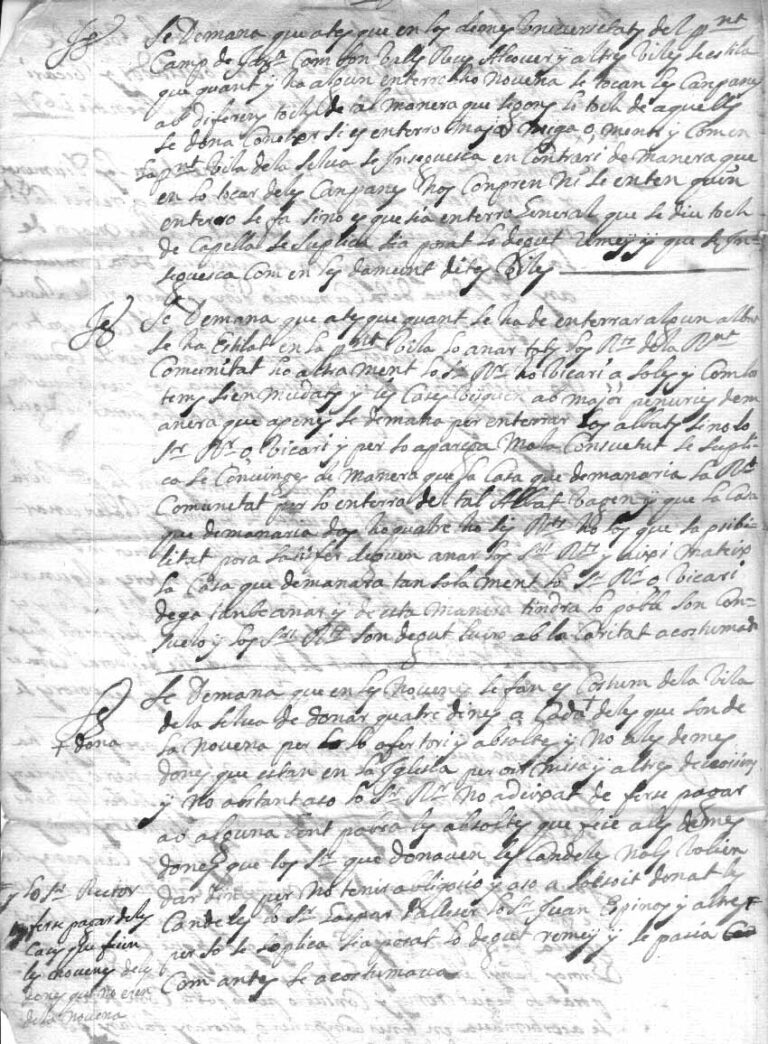 Se Demana que ates que en les demes Universitats del pnt
Camp de Tarra Com son Valls Reus Alcover y altres Viles se estila
que quant y ha algun enterro ho Novena se tocan les Campanes
ab diferens tochs de tal manera que segons lo toch de aquelles
se dona Coneixer si es enterro major miga o, menor y Com en
la pnt Vila de la Selva se Inseguesca en Contrari de manera que
en lo tocar deles Campanes nos Conpren Ni se enten quin
enterro se fa sino es que sia enterro General que se diu toch
de Capella se Suplica sia posat lo degut remey y que se In-
seguesca Com en les damunt dites Viles
Se Demana que ates que quant se ha de enterrar algun albat
se ha Estilat en la pnt Vila lo anar tots los Rts de la Rnt
Comunitat ho altrament lo Sr Rr ho Vicari a soles y Com los
temps sien mudats y les Cases visquen ab major penuries dem
anera que apenes se demana per enterrar los albats sino lo
Sr Rr o, Vicari y per so aparega Mala Consuetut se supli-
ca se Convinga de Manera que la Casa que demanaria la Rnt
Comunitat per lo enterro de tal Albat vagen y que la Casa
que demanaria dos ho quatre ho sis Rts ho los que sa posibi-
litat pora satisfer deguen anar los Srs Rts y aixi mateix
la Casa que demanara tan sola ment lo Sr Rr o, Vicari
dega tanbe anar y de esta manera tindra lo poble son Con-
suelo y los Srs Rts son degut lucro ab la Caritat acostumada
Se Demana que en les Novenes se fan es Costum de la Vila
de la Selva de donar quatre dines a Cada deles que son de
+ dona
la Novena per lo so ofertori y absoltes y No a les demes
dones que estan en la Iglesia per oir missa y altres devocions
y No obstant aso lo Sr Rr No a deixat de ferse pagar
ab alguna Gent pobra les absoltes que feie a les demes
dones que los Srs que donaven les Candeles Nols volien
dar dines per No tenir obligacio y aso a solsoit donat les
Candeles lo Sr Gaspar lo Sr Juan Espinos y altres
per so se suplica sia posat lo degut remey y se pasia
Com antes se acostumava
lo Sr Rector
ferse pagar deles
Cases que feien
les Novenes deles
dones que no eren
de la Novena